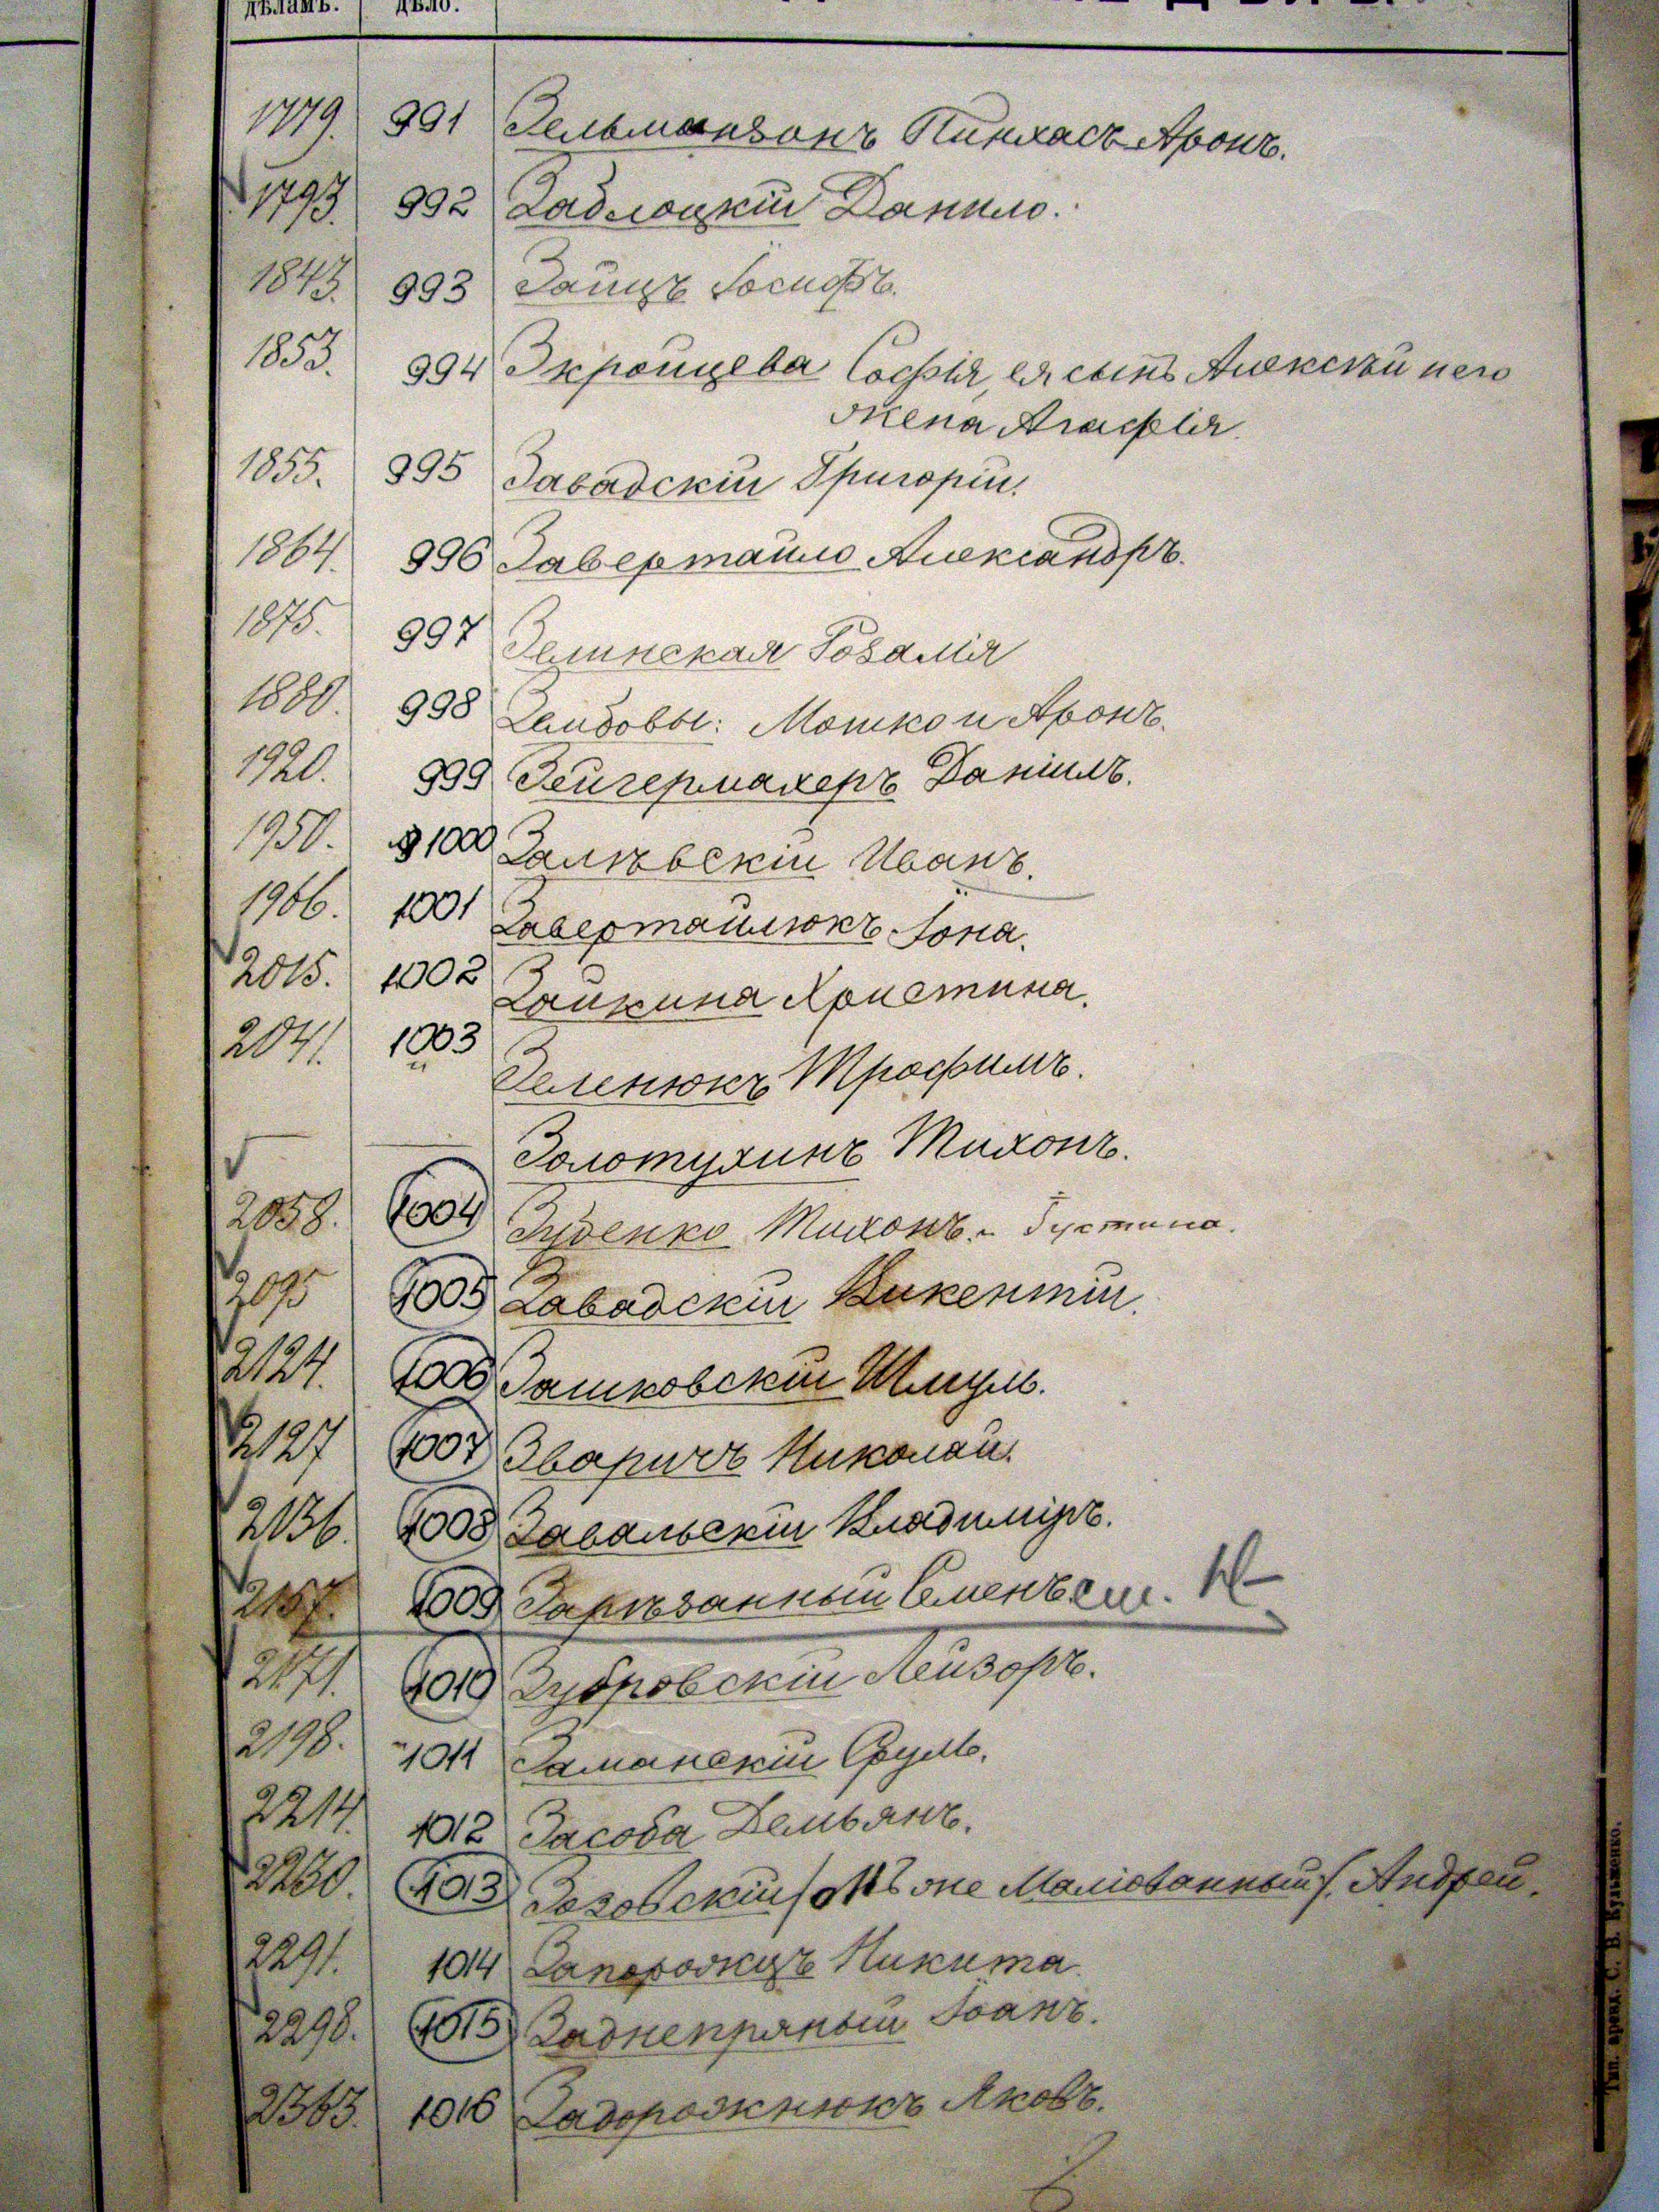 дѣламъ. дѣло.
1779. 991 Зельманзонъ Пинхасъ Аронъ.
1793. 992 Заблоцкій Данило.
1843. 993 Заицъ Іосифъ.
1853. 994 Экройцева Софія, ея сынъ Алексѣй и его
жена Агафія.
1855. 995 Завадскій Григорій.
1864. 996 Завертайло Александръ.
1875. 997 Зелинская Розалія
1880. 998 Зейдовы: Мошко и Аронъ.
1920. 999 Зейгермахеръ Даніилъ.
1950. 1000 Залѣвскій Иванъ.
1966. 1001 Завертайлюкъ Іона.
2015. 1002 Заикина Христина.
2041. 1003 Зеленюкъ Трофимъ.
Золотухинъ Тихонъ.
2058. 1004 Зуденко Тихонъ. и Іустина.
2095 1005 Завадскій Викентій.
2124. 1006 Зашковскій Шмуль.
2127 1007 Зваричъ Николай.
2136. 1008 Завальскій Владиміръ.
2157. 1009 Зарѣзанный Семенъ см. Н
2171. 1010 Зубровскій Лейзоръ.
2198. 1011 Заманскій Сруль.
2214. 1012 Засоба Демьянъ.
2230. 1013 Зозовскій/онъ же Маліованный/. Андрей.
2291. 1014 Запорожецъ Никита
2298. 1015 Заднепряный Іоанъ.
2363. 1016 Задорожнюкъ Яковъ.
Тип. аренд. С. В. Кульженко.